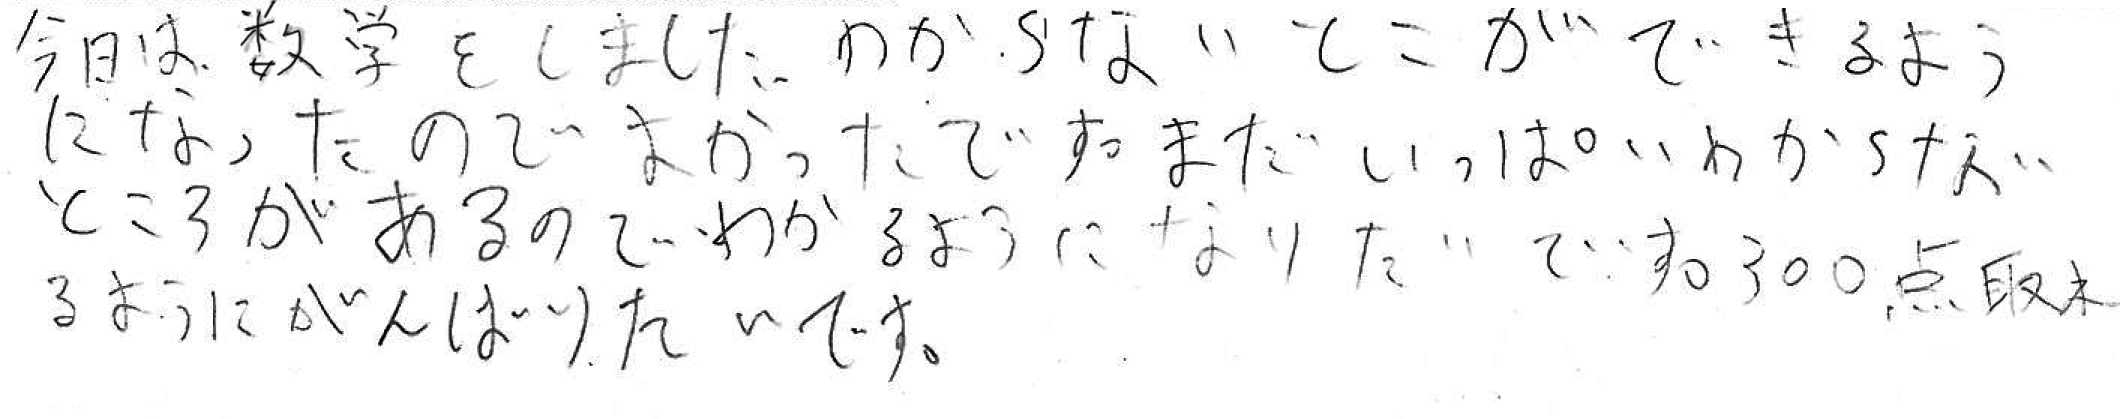 今日は数学をしました。わからないとこができるよう
になったのでよかったです。まだいっぱいわからない
ところがあるのでわかるようになりたいです。300点取れ
るようにがんばりたいです。